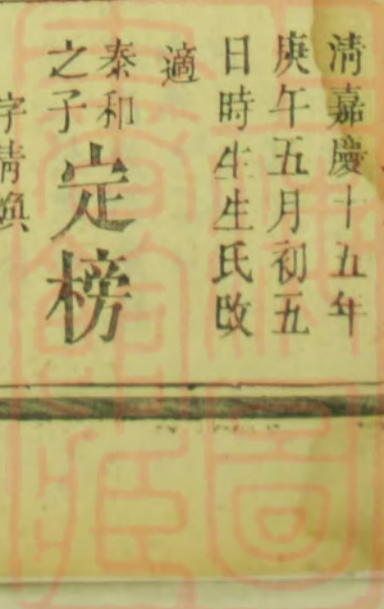 清嘉慶十五年
庚午五月初五
日時生生氏改
適
泰和
之子
定榜
字精煥